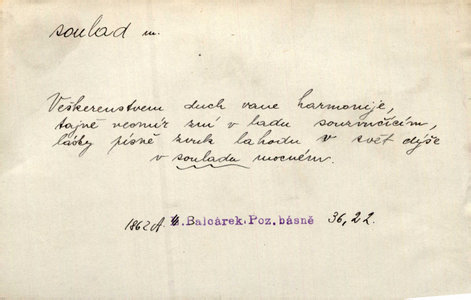 soulad m.
Veškerenstvem duch vane harmonije,
tajně vesmír zní v ladu souzvučícím,
lásky písně zvuk lahodu v svět dýše
v souladu mocném.
1862 A. Balcárek. Poz. básně 36, 22.